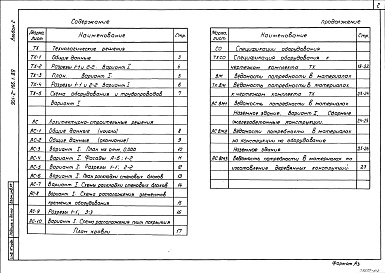 2
Содержание
Марка, лист Наименование Стр.
ТХ Технологические решения
ТХ-1 Общие данные 3
ТХ-2 Разрезы 1-1 и 2-2 Вариант I 4
ТХ-3 План Вариант I 5
ТХ-4 Разрезы 1-1 и 2-2 Вариант I 6
ТХ-5 Схема оборудования и трубопроводов 7
Вариант I
АС Архитектурно-строительные решения
АС-1 Общие данные (начало) 8
АС-2 Общие данные (окончание) 9
АС-3 Вариант I. План на отм. 0.000 10
АС-4 Вариант I. Фасады 11
АС-5 Вариант I. Разрезы 1-1; 2-2 12
АС-6 Вариант I. План раскладки стеновых блоков 13
АС-7 Вариант I. Схемы раскладки стеновых блоков 14
АС-8 Вариант I. Схема расположения элементов
крепления оборудования 15
АС-9 Разрезы 1-1, 3-3 16
АС-10 Вариант I Схема расположения плит покрытия
План кровли 17
продолжение
Марка, лист Наименование Стр.
СО Спецификации оборудования
ТХ СО Спецификация оборудования к
чертежам комплекта ТХ 18-22
ВМ Ведомости потребности в материалах
ТХ ВМ Ведомость потребности в материалах
к чертежам комплекта ТХ 23-24
АС ВМ1 Ведомость потребности в материалах
Наземное здание. Вариант I. Сборные
железобетонные конструкции.
АС ВМ2 Ведомость потребности в материалах
на конструкции по оборудованию
Наземное здание
АС ВМ3 Ведомость потребности в материалах на
изготовление деревянных конструкций 29
Формат А3